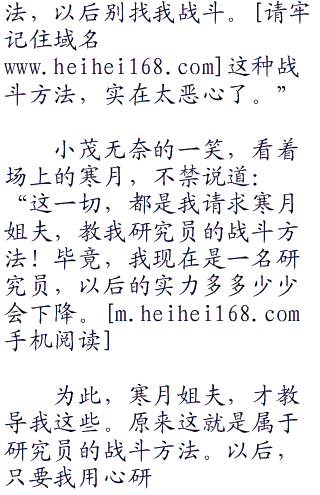 法，以后别找我战斗。[请牢
记住域名
www.heihei168.com]这种战
斗方法，实在太恶心了。”
小茂无奈的一笑，看着
场上的寒月，不禁说道：
“这一切，都是我请求寒月
姐夫，教我研究员的战斗方
法！毕竟，我现在是一名研
究员，以后的实力多多少少
会下降。[m.heihei168.com
手机阅读]
为此，寒月姐夫，才教
导我这些。原来这就是属于
研究员的战斗方法。以后，
只要我用心研